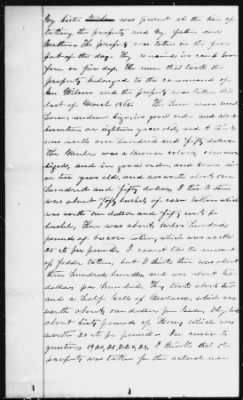 My sister was present at the time of
taking the property and my father and
brother. The property was taken in the fore
part of the day. They remained in camp some
four or five days. The men that took the
property belonged to the command of
Gen Wilson and the property was taken the
last of March 1865. The
horse medium size, in good order and about
seventeen or eighteen years old, and I think
was worth one hundred and fifty dollars
The Mule was a mouse colored, common
sized, and in good order, and some
or two years old, and was worth about one
hundred and fifty dollars. I think there
was about fifty bushels of corn taken which
was worth one dollar and fifty cents per
bushel, there was about twelve hundred
pounds of bacon taken, which was worth
25 cts per pound. I cannot state the amount
of fodder taken, but I think there was about
three hundred bundles and was about two
dollars per hundred, they took about two
and a half Galls of Molasses, which was
worth about one dollar per Gallon. They took
about sixty pounds of Honey which was
worth 20 cts per pound. In answer to
questions I think that the
property was taken for the actual use